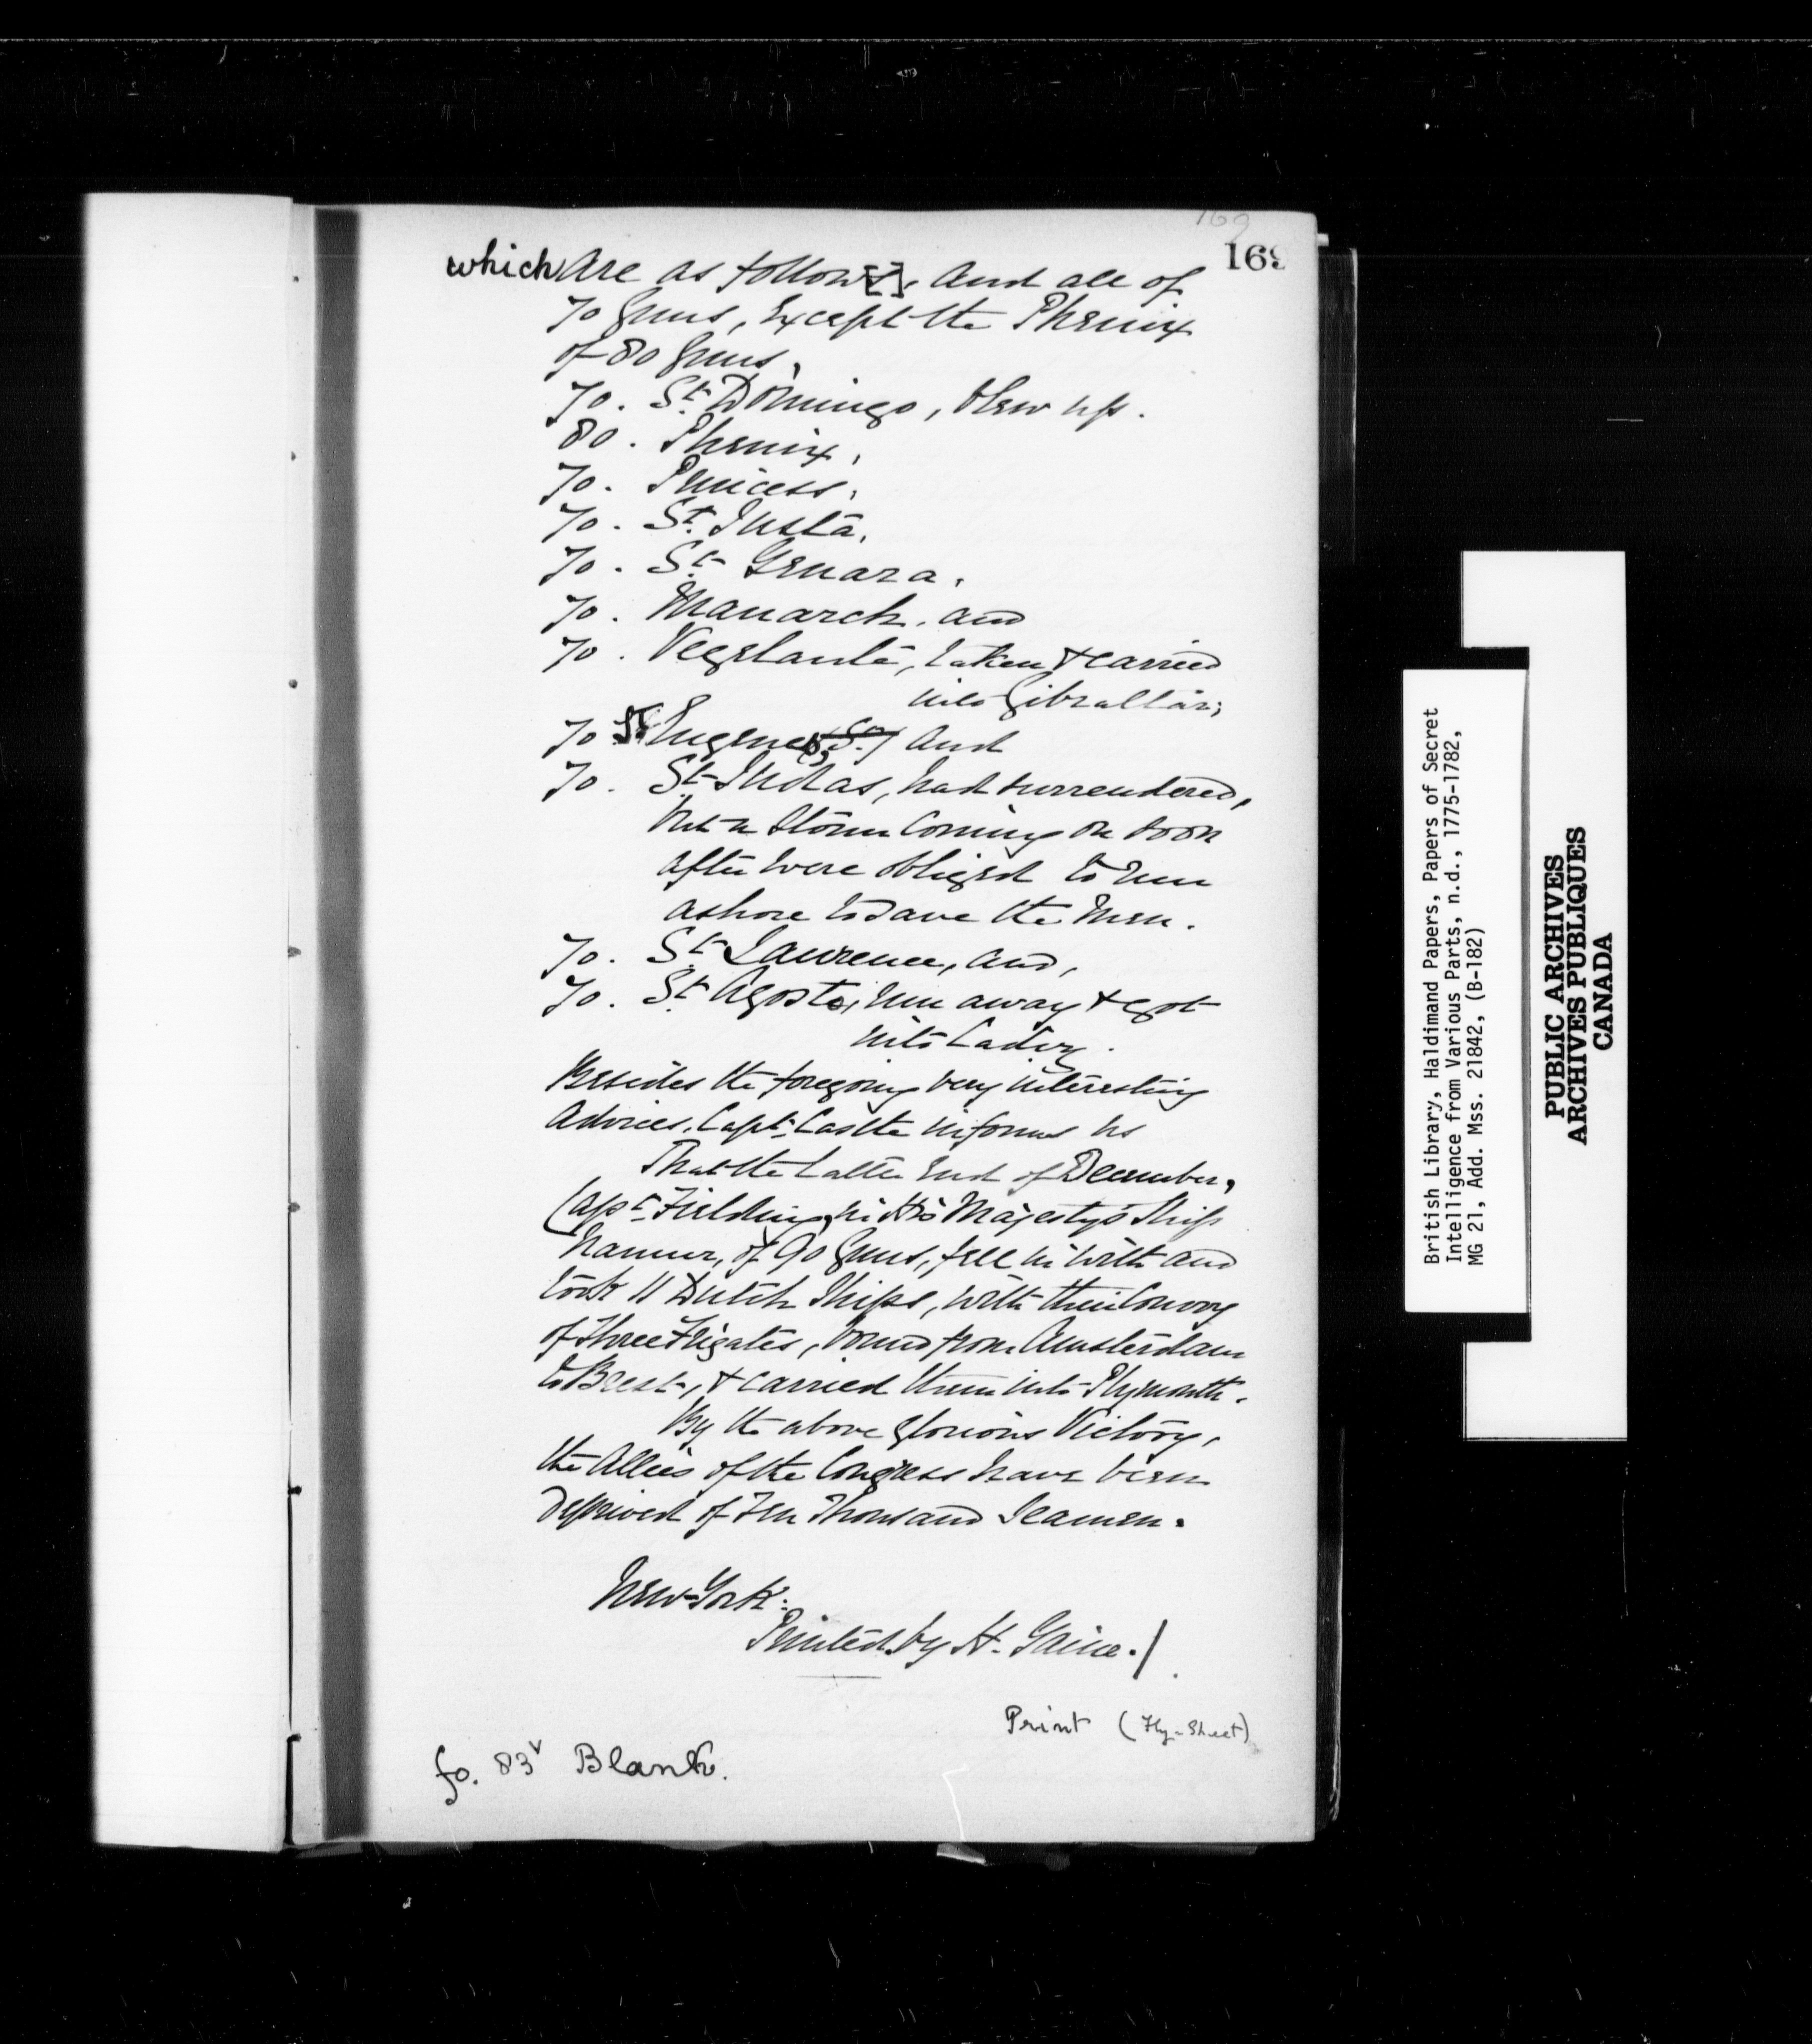 169
169
which are as follow[s], and all of
70 Guns, Except the Phenix
of 80 Guns,
70. St. Domingo, blew up.
80. Phenix,
70. Princess,
70. St. Justa,
70. St. Genara,
70. Manarch, and
70. Vegelanta, taken & carried
into Gibraltar;
70 St. Eugenes, St. and
70. St. Julas, had surrendered,
but a Storm coming on soon
after were obliged to run
ashore to save the Men.
70. St. Laurence, and,
70. St. Agosto, run away & got
into Cadiz.
Besides the foregoing very interesting
Advices, Capt. Castle informs us
That the latter End of December,
Capt. Fielding, in His Majesty's Ship
Namur, of 90 Guns, fell in with and
took 11 Dutch Ships, with their Convoy
of Three Frigates, bound from Amsterdam
to Brest, & carried them into Plymouth.
By the above glorious Victory,
the Allies of the Congress have been
deprived of Ten Thousand Seamen.
New-York:
Printed by H. Gaine./.
Print (Fly-Sheet)
fo. 83v Blank.
British Library, Haldimand Papers, Papers of Secret
Intelligence from Various Parts, n.d., 1775-1782,
MG 21, Add. Mss. 21842, (B-182)
PUBLIC ARCHIVES
ARCHIVES PUBLIQUES
CANADA